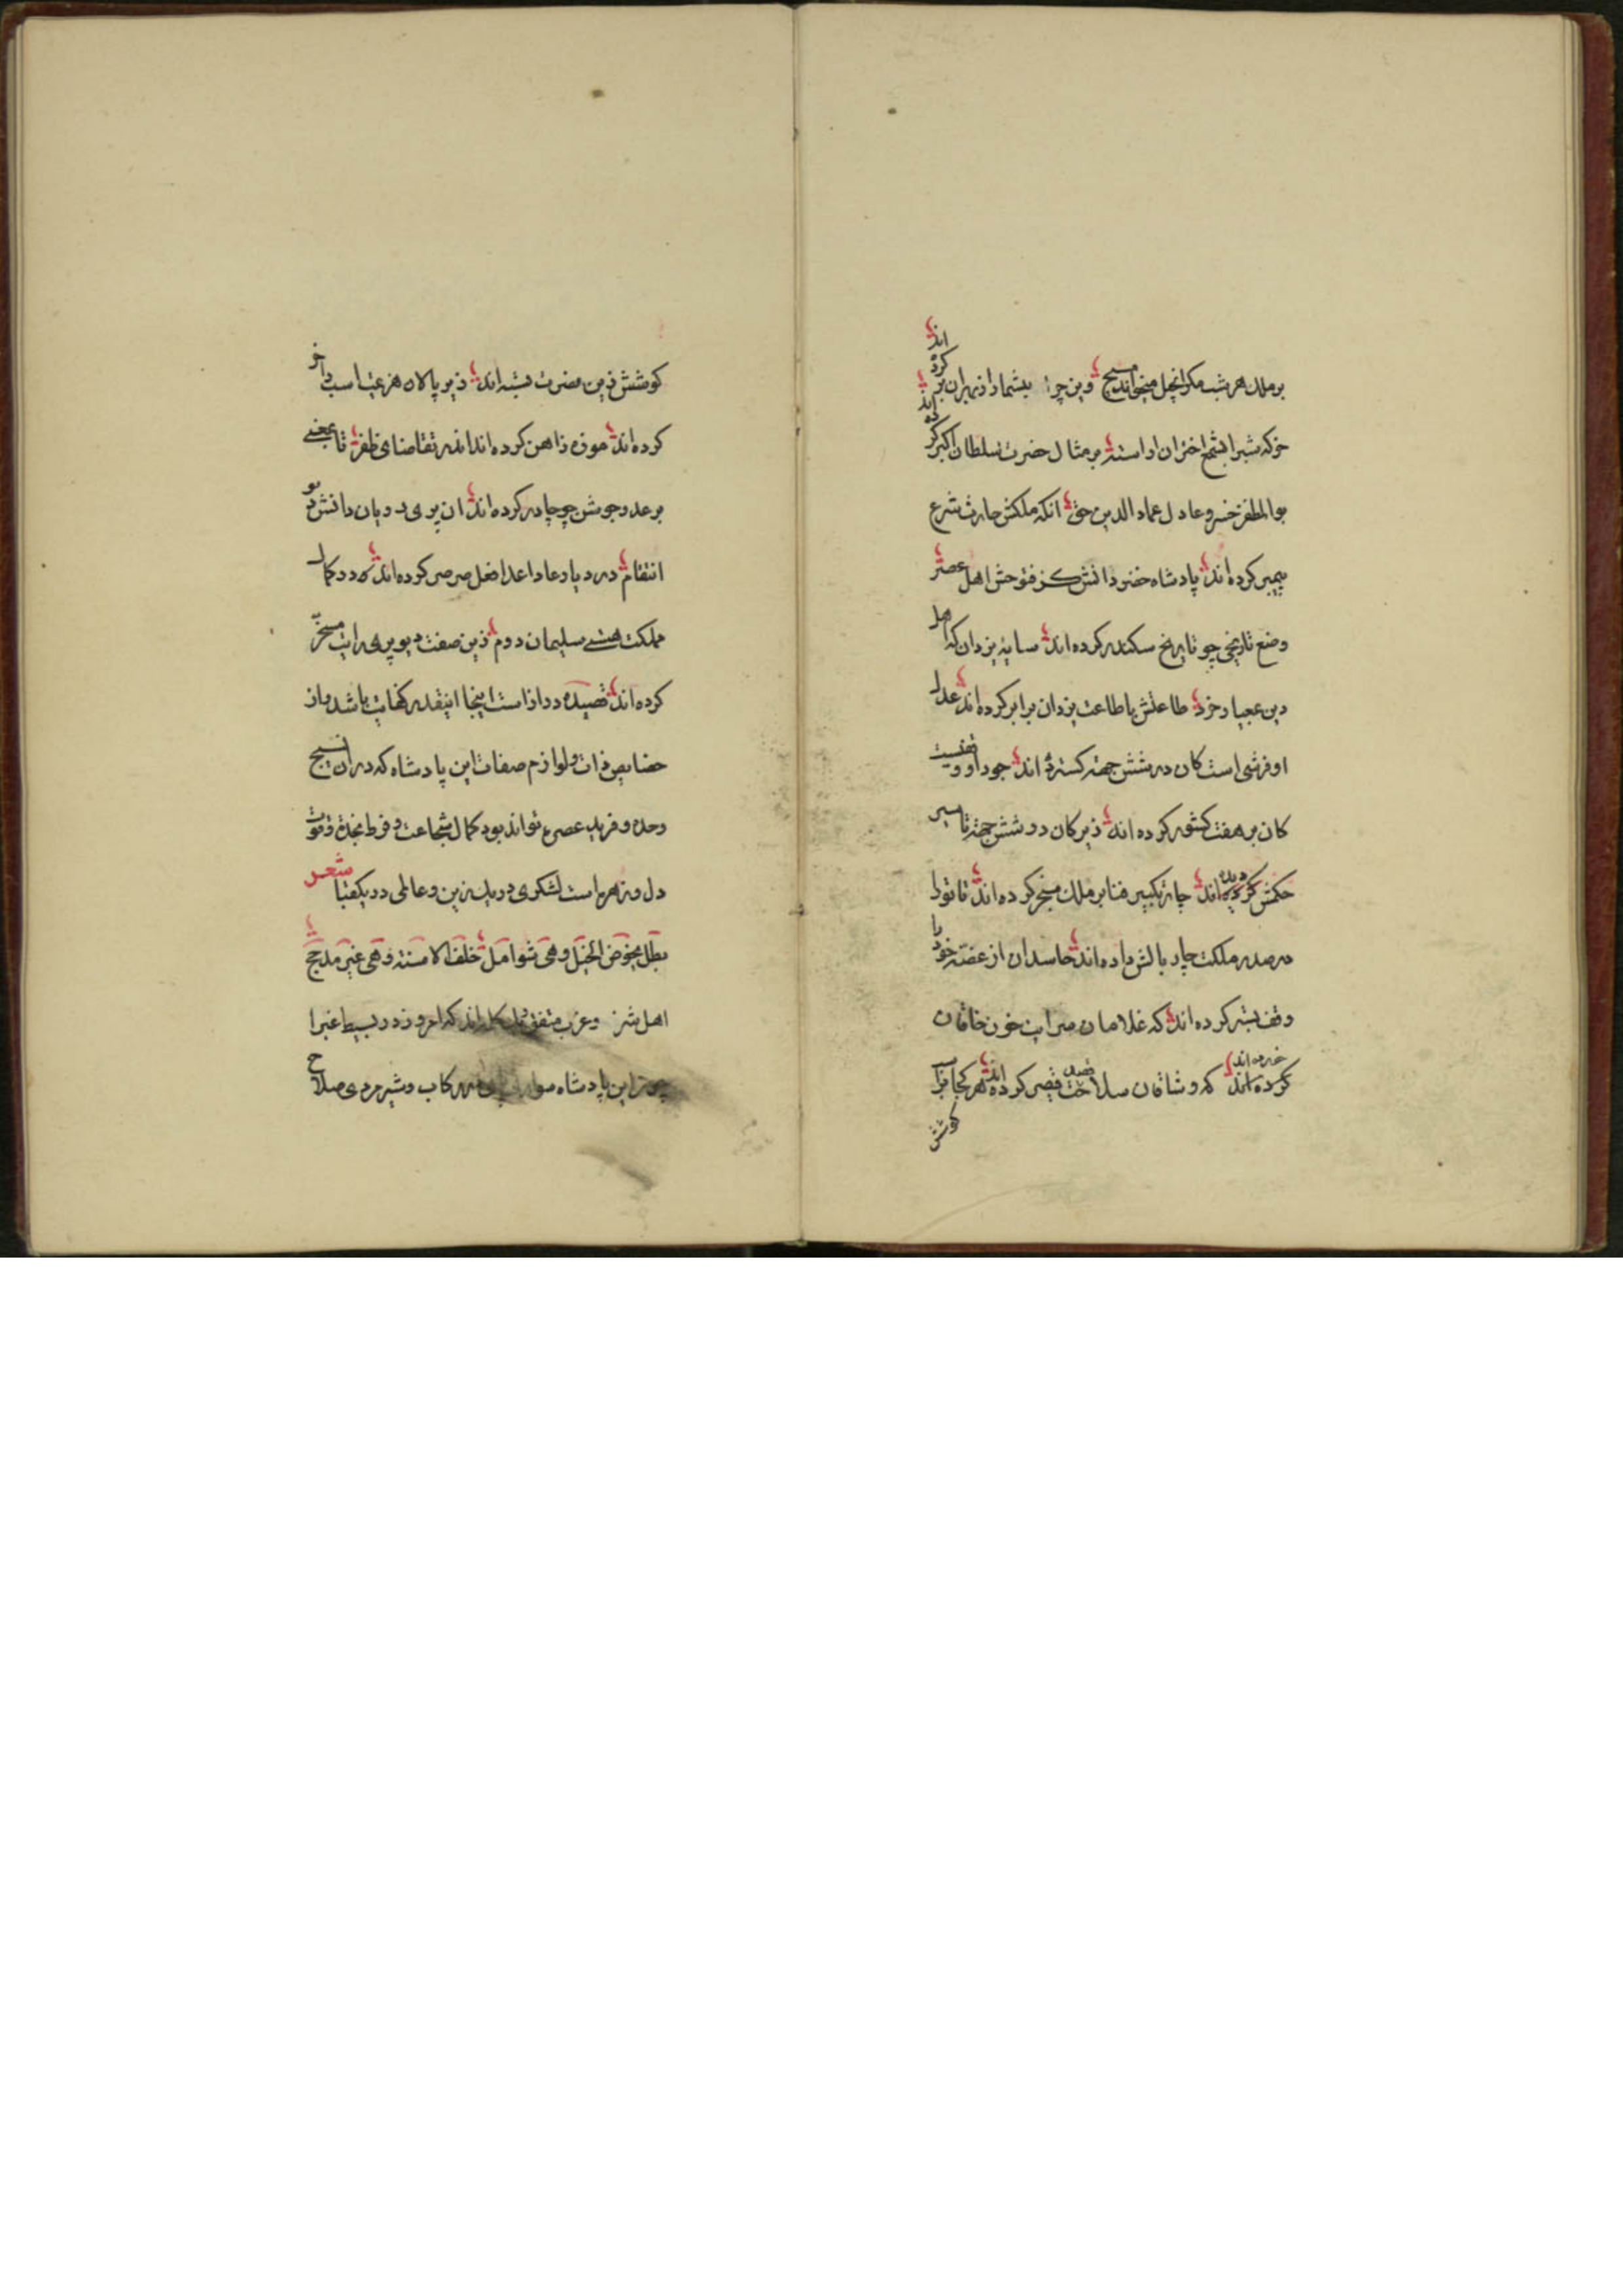 بر ملک هر شب مکر انجیل میخواند مسیح وین چرا بیشمار از بهر ان بر کرده اند
خرکه شبرا بشمع اختران اراسته بر مثال حضرت سلطان اکبر کرده اند
بوالمظفر خسرو عادل عماد الدین حق انکه ملکش حارث شرع
پیمبر کرده اند پادشاه خضر دانش کز فتوحش اهل عصر
وضع تاریخی چو تاریخ سکندر کرده اند سایه یزدان که اهل
دین بمعیار خرد طاعتش با طاعت یزدان برابر کرده اند عدل
او فرشی است کان در شش جهت کسترده اند جود او
کان بر هفت کشور کرده اند زیر کان در شش جهت تا سیر
حکمش دیده اند چار تکبیر فنا بر ملک سنجر کرده اند تا تو را
در صدر ملکت چار بالش داده اند حاسدان از غصه خود را
وقف بستر کرده اند که غلامان سرایت خون خاقان
خورده اند که وشاقان سلاحت قصد قیصر کرده اند هر کجا بر
کوشش
کوشش زین مضرت بسته اند زیر پالان هزیمت اسب داخر
کرده اند موزه از اهن کرده اند اندر تقاضای ظفر تا بجنبی
بر عدو جوشن چو چادر کرده اند ان پری رویان دانش تو
انتقام در دیار عاد اعدا فعل صرصر کرده اند که در کمال
مملکت هستی سلیمان دوم زین صفت دیو پری رایت مسخر
کرده اند قصیده دراز است اینجا اینقدر کفایت باشد و از
خصایص ذات و لوازم صفات این پادشاه که در ان نسیج
وحده و فرید عصر تواند بود کمال شجاعت و فرط نجدة و قوت
دل و زهره است لشکری در یک زین و عالمی در یک قبا شعر
بطل یخوض الخیل وهی شوامل خلف الاسنة وهی غیر مدجج
اهل شرق و عرب متفق الکلمه اند که امروز در بسیط غبرا
این پادشاه سوار رکاب و شیر مردی صلاح